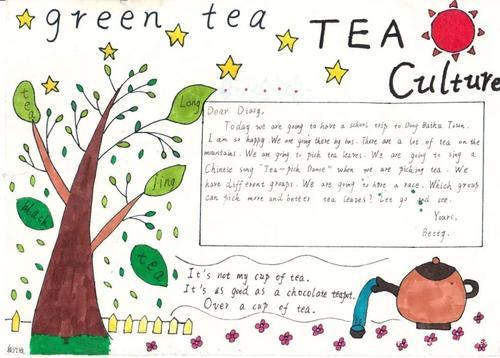 green tea
TEA
Culture
tea
Long
jing
black
tea
Dear Diary,
Today we are going to have a school trip to Dong Baihu Town.
I am so happy. We are going there by bus. There are a lot of tea on the
mountains. We are going to pick tea leaves. We are going to sing a
Chinese song "Tea-pick Dance" when we are picking tea. We
have different groups. We are going to have a race. Which group
can pick more and better tea leaves? Let go and see.
Yours,
It's not my cup of tea.
It's as good as a chocolate teapot.
Over a cup of tea.